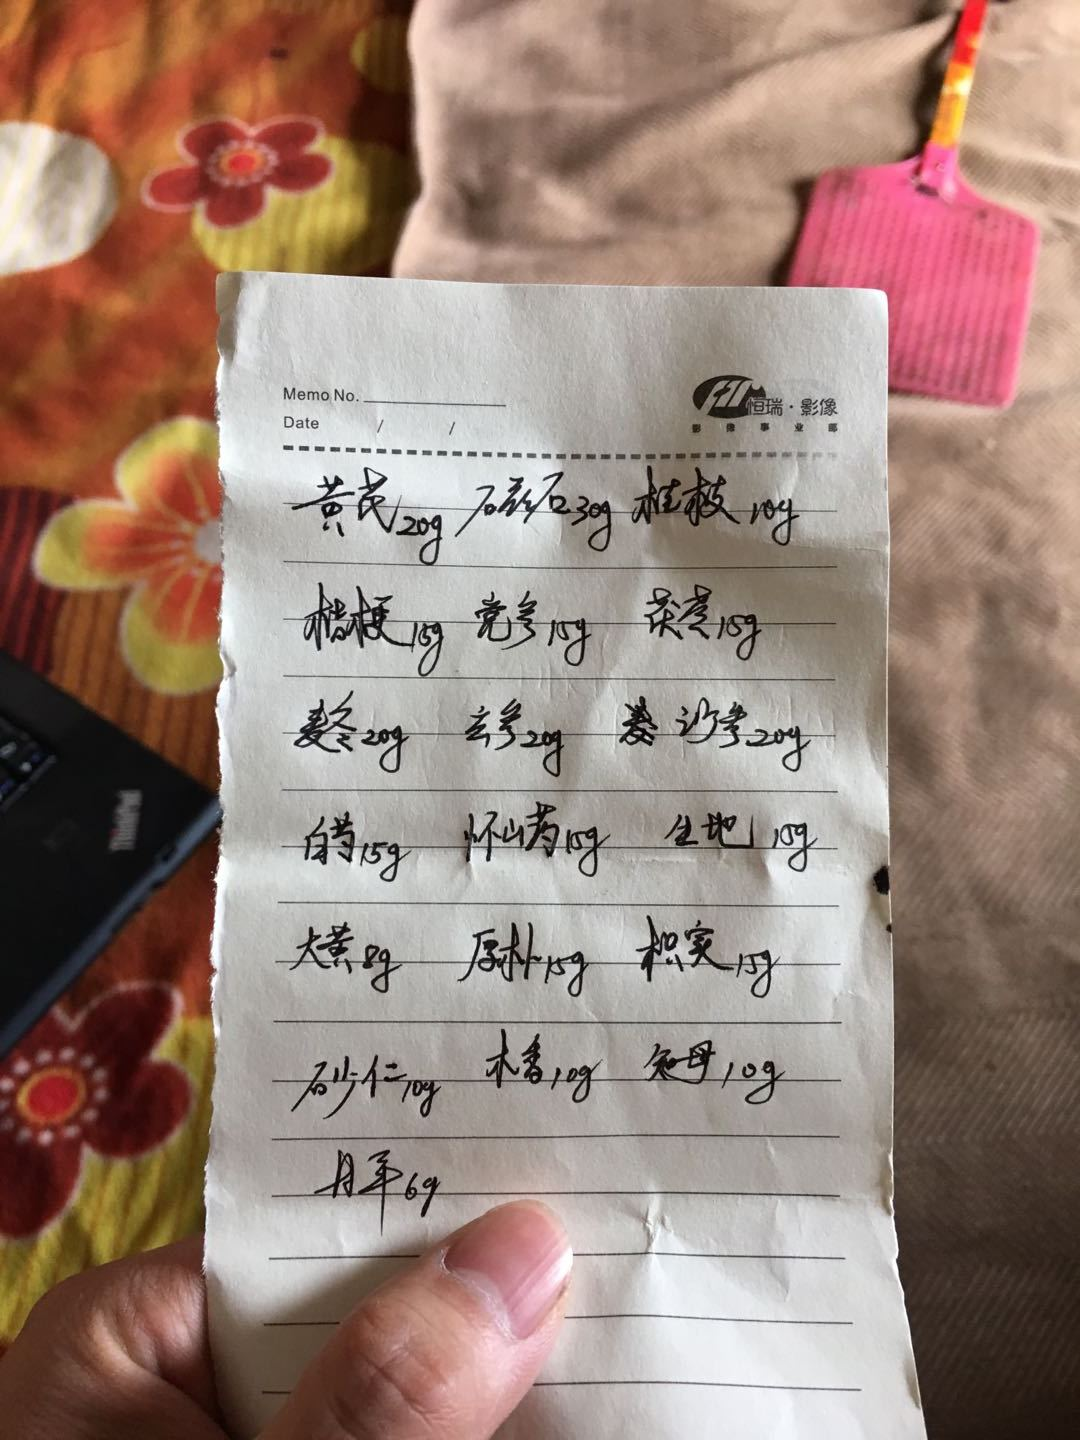 Memo No.
恒瑞·影像
Date / /
影像事业部
黄芪20g 磁石30g 桂枝10g
桔梗15g 党参15g 茯苓15g
麦冬20g 玄参20g 沙参20g
白芍15g 怀山药15g 生地15g
大黄8g 厚朴15g 枳实15g
砂仁10g 木香10g 知母10g
甘草6g